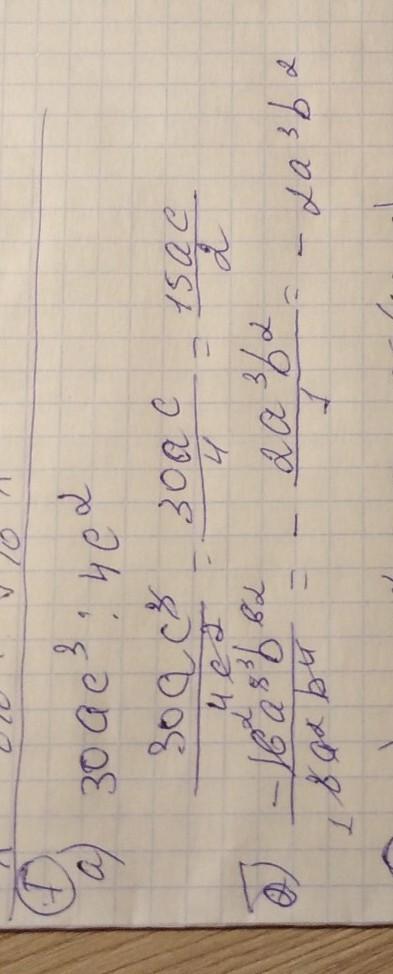 I
а) 30ac³ : 4c²
30ac³/4c² = 30ac/4 = 15ac/2
б) -16a⁵b⁶/8a²b⁴ = - 2a³b²/1 = - 2a³b²